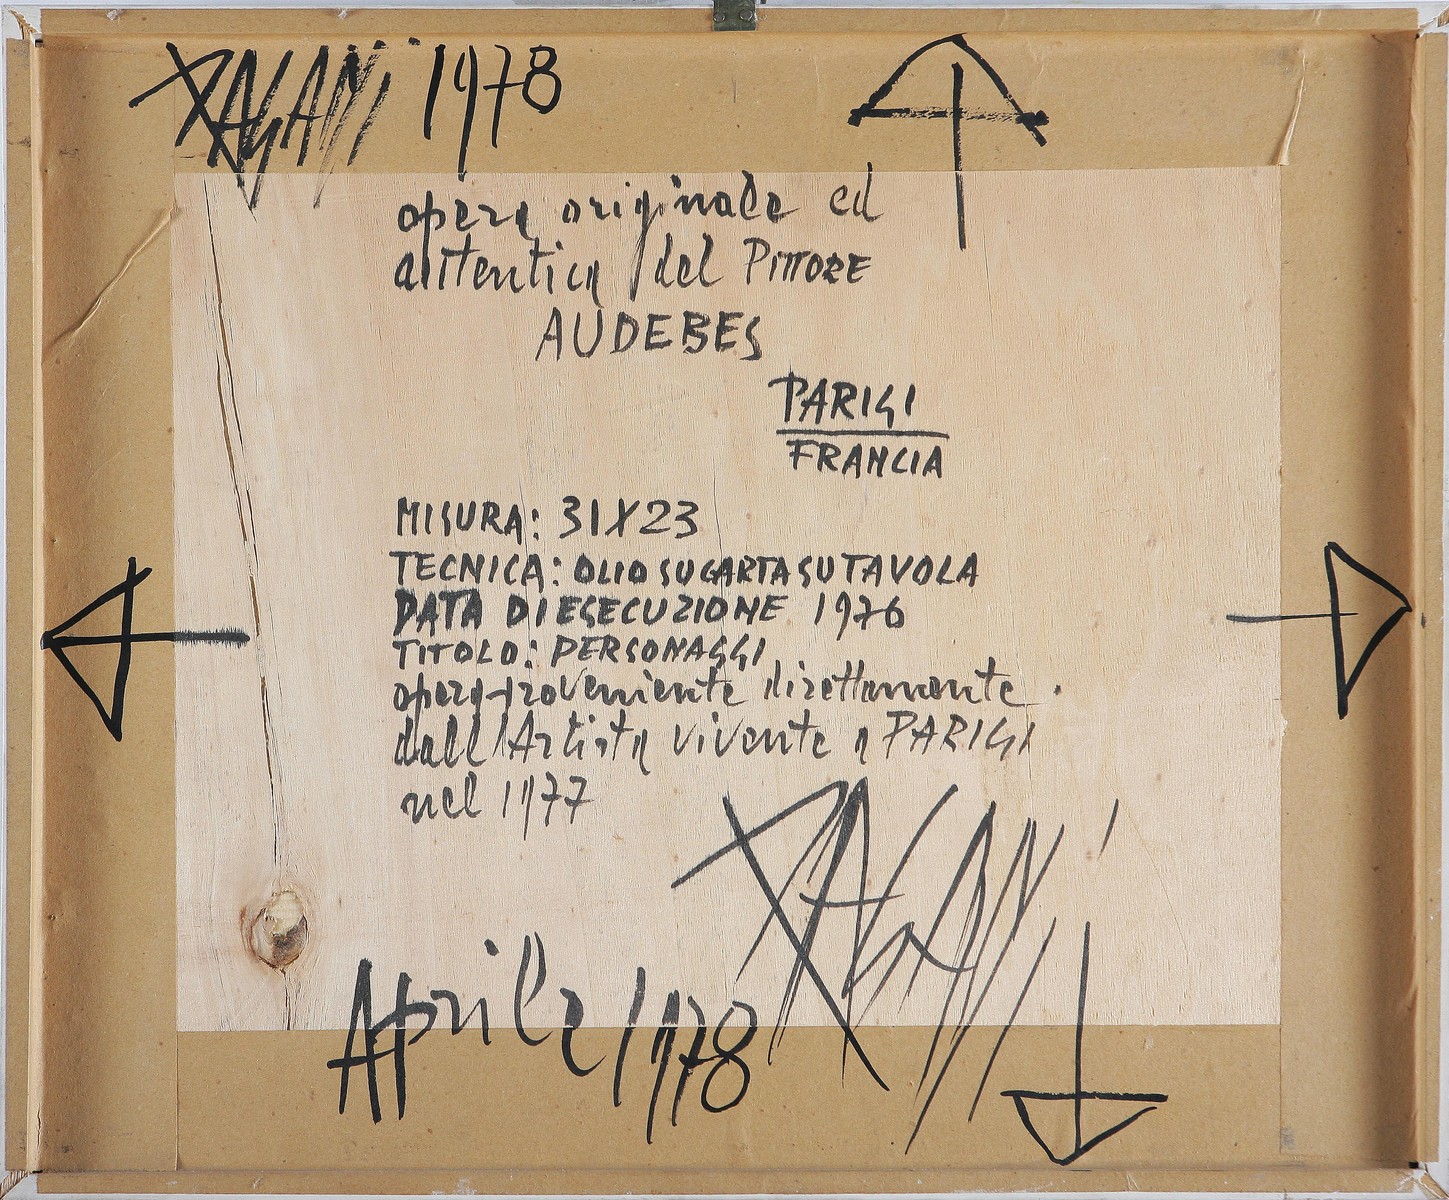 PAGANI 1978
opera originale ed
autentica del PITTORE
AUDEBES
PARIGI
FRANCIA
MISURA: 31X23
TECNICA: OLIO SU CARTA SU TAVOLA
DATA DI ESECUZIONE 1976
TITOLO: PERSONAGGI
opera proveniente direttamente
dall'Artista vivente a PARIGI
nel 1977
PAGANI
Aprile 1978